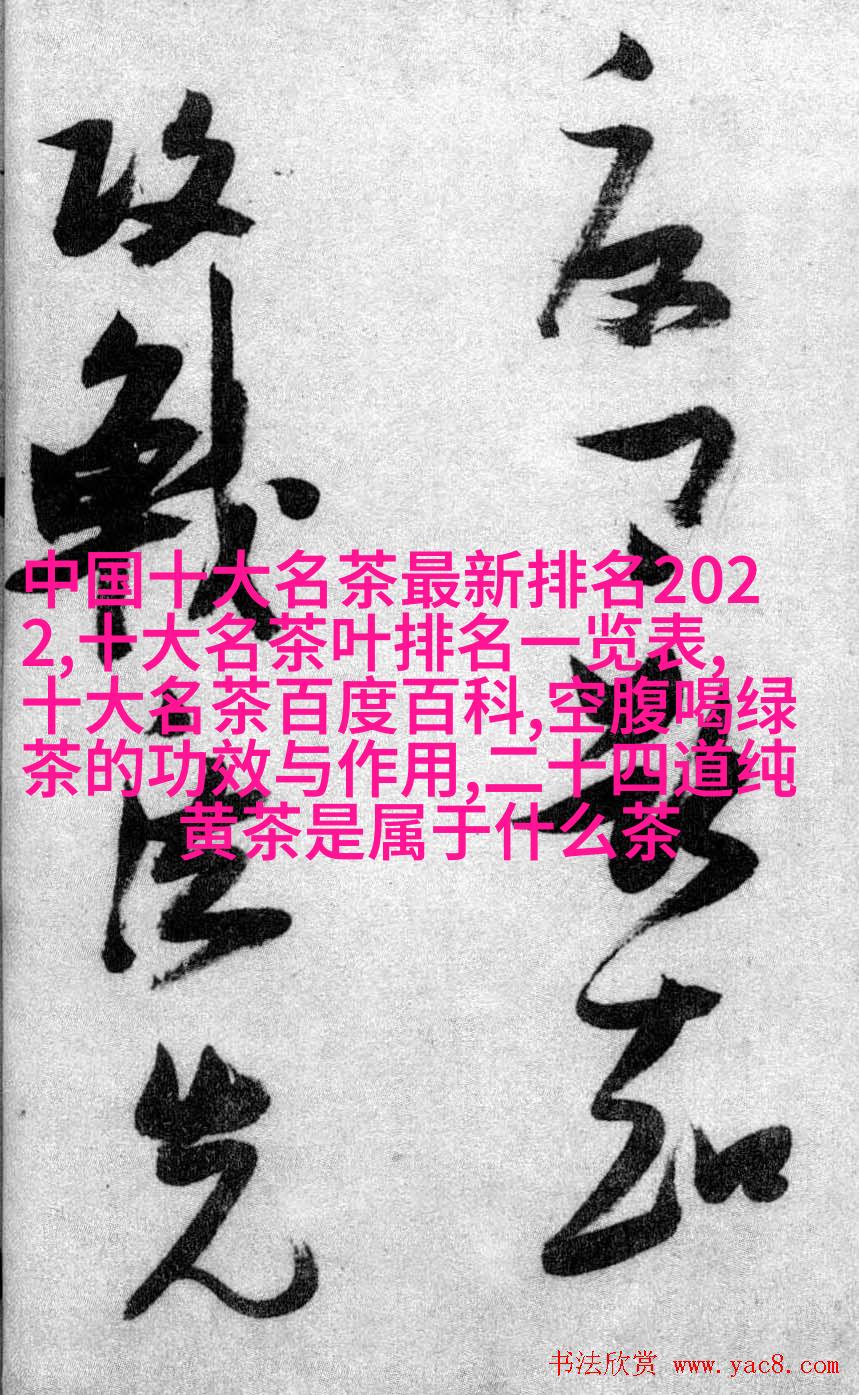 中国十大名茶最新排名202
2,十大名茶叶排名一览表,
十大名茶百度百科,空腹喝绿
茶的功效与作用,二十四道纯
黄茶是属于什么茶
知
攻戰先
书法欣赏 www.yac8.com